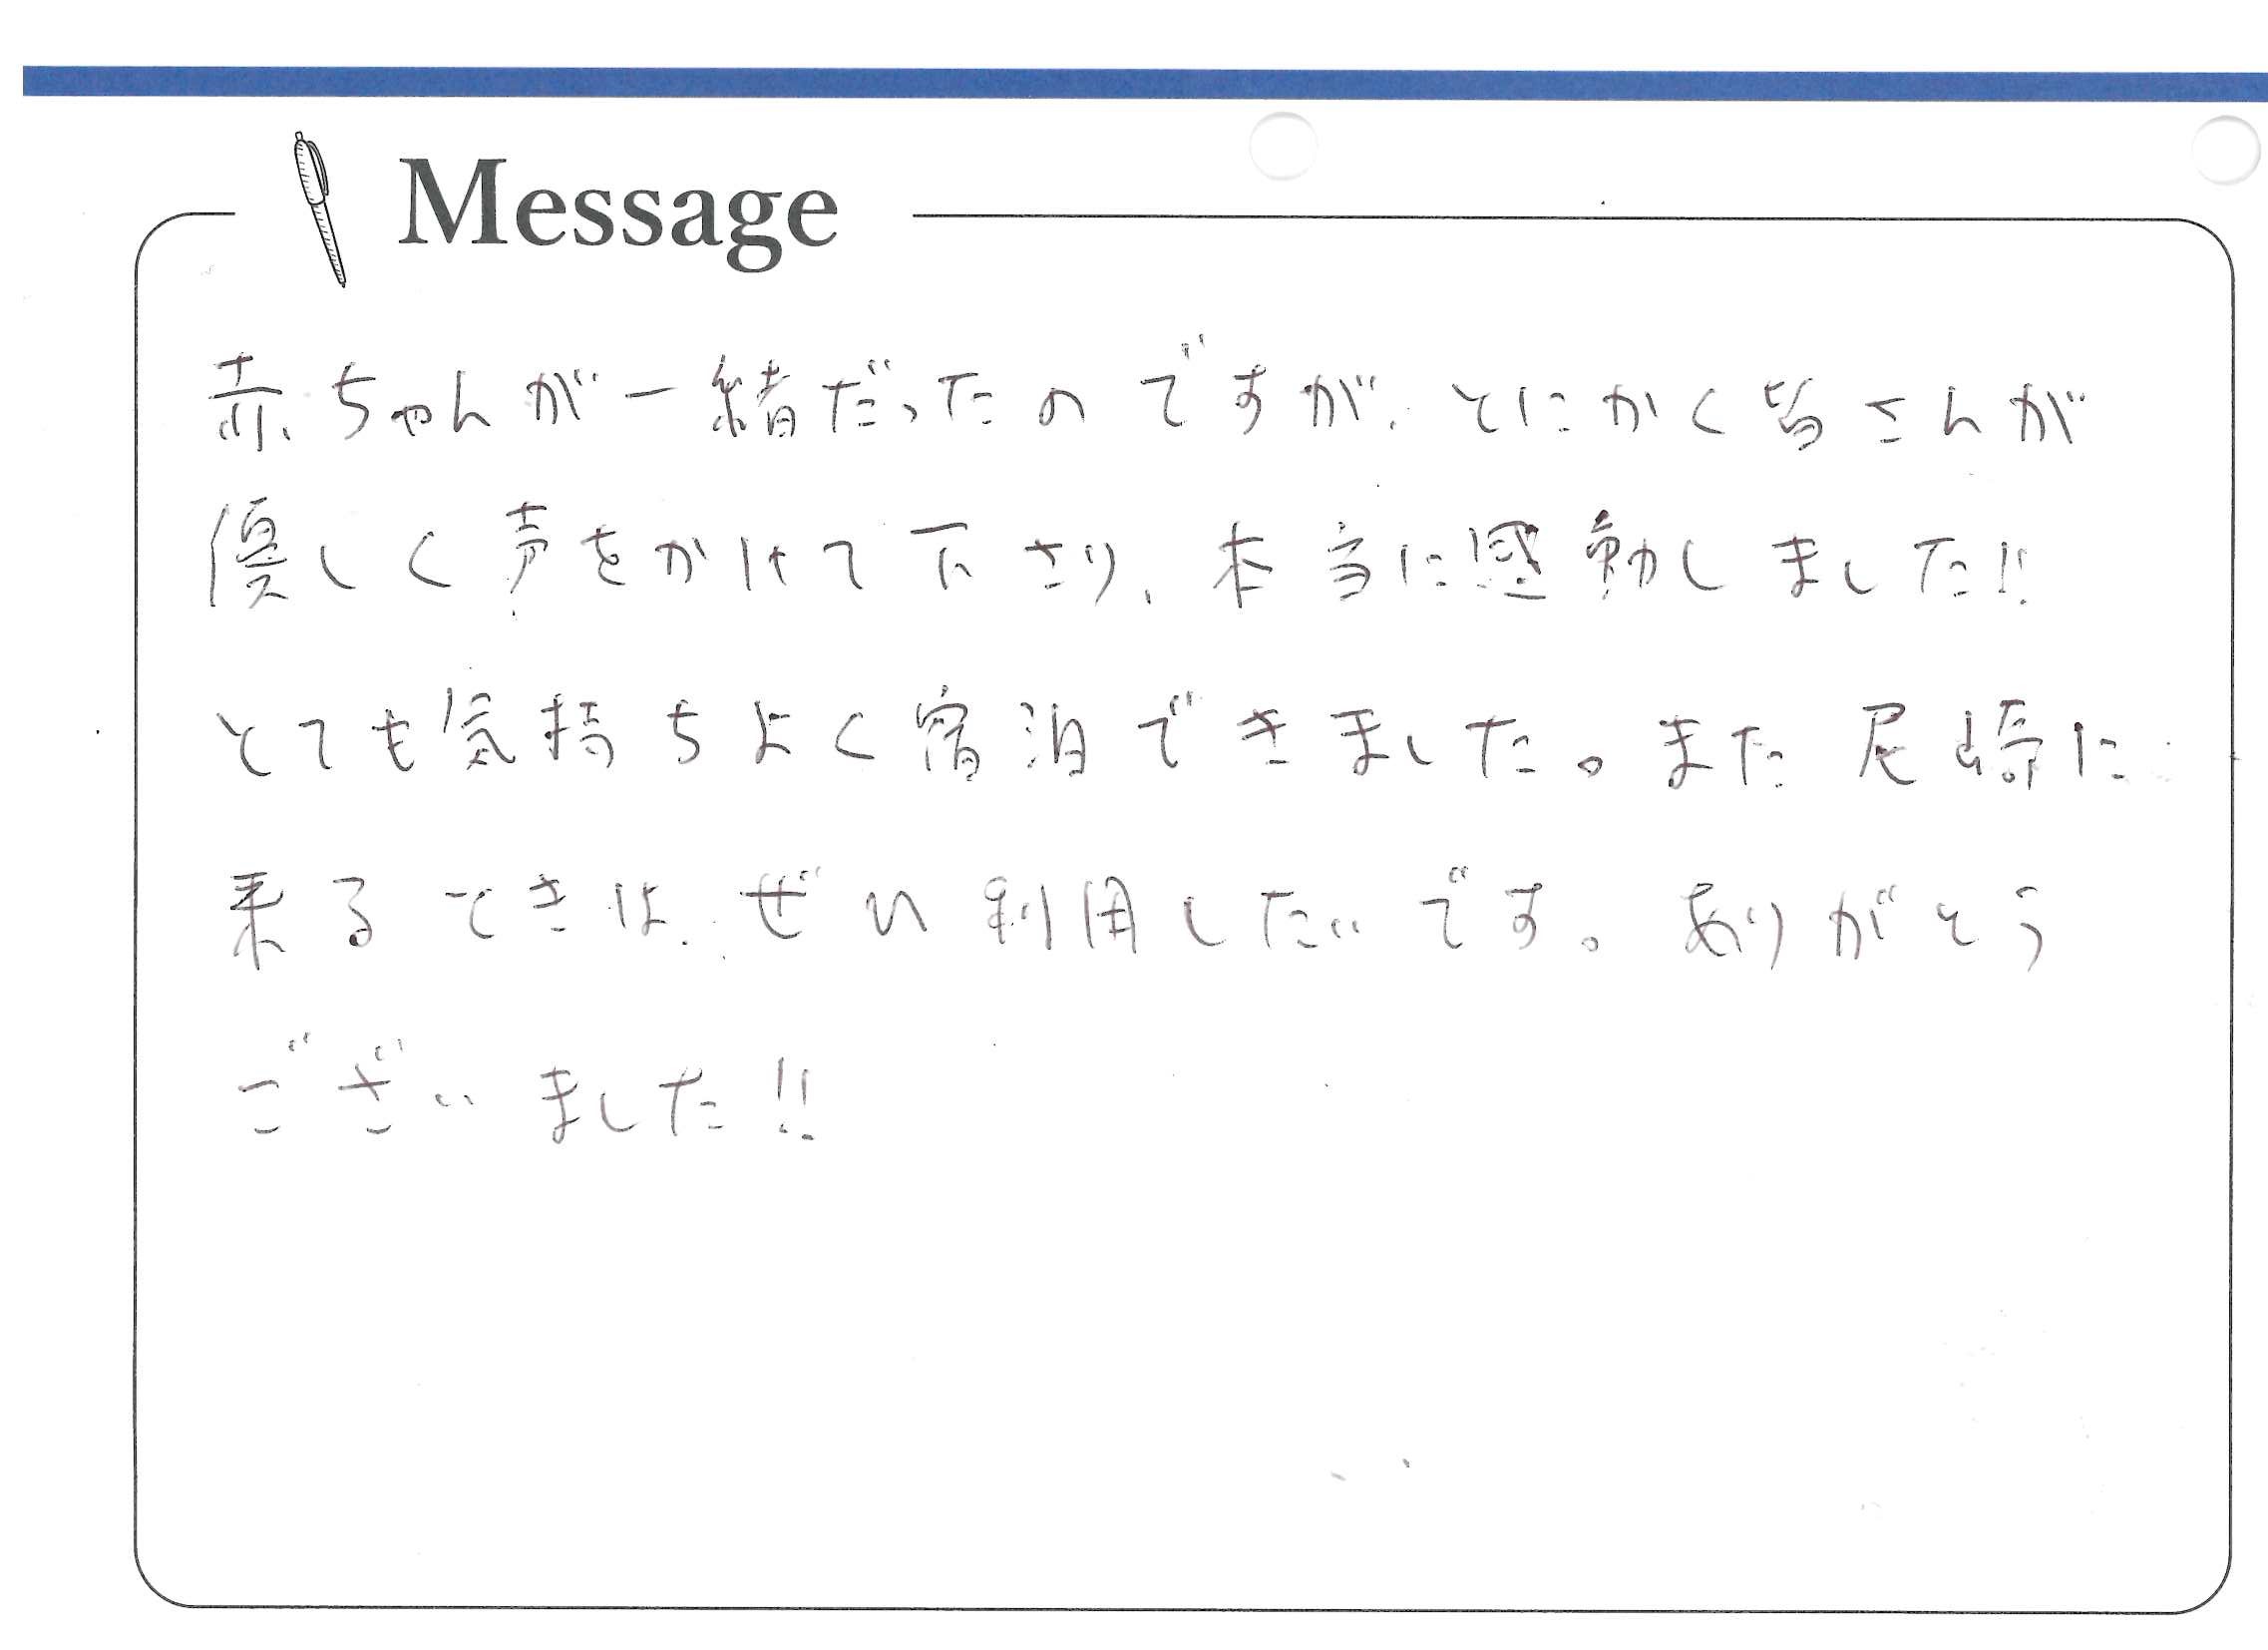 Message
赤ちゃんが一緒だったのですが、とにかく皆さんが
優しく声をかけて下さり、本当に感動しました!!
とても気持ちよく宿泊できました。また尼崎に
来るときは、ぜひ利用したいです。ありがとう
ございました!!